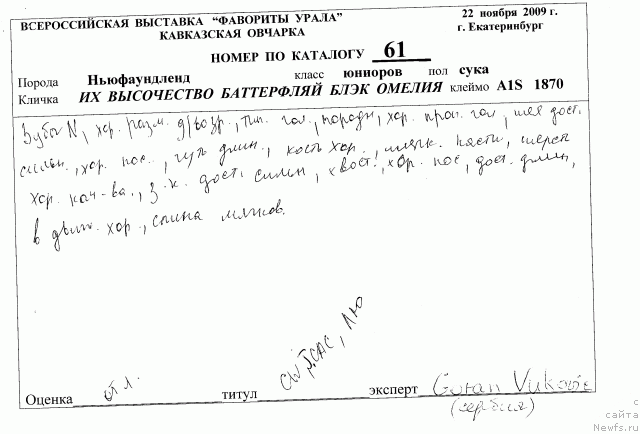 ВСЕРОССИЙСКАЯ ВЫСТАВКА “ФАВОРИТЫ УРАЛА” 22 ноября 2009 г.
КАВКАЗСКАЯ ОВЧАРКА г. Екатеринбург
НОМЕР ПО КАТАЛОГУ 61
Порода Ньюфаундленд класс юниоров пол сука
Кличка ИХ ВЫСОЧЕСТВО БАТТЕРФЛЯЙ БЛЭК ОМЕЛИЯ клеймо A1S 1870
Зубы N, хор. разм. д/возр., тип. гол., породн, хор. проп. гол, шея дост.
сильн., хор. пос., чуть длин., кость хор., мягк. пасти, шерсть
хор. кач-ва, з.к. дост. сильн, хвост. хор. пос, дост. длин,
в движ. хор., спина мягков.
CW, JCAC, ЛЮ
Оценка отл. титул эксперт Goran Vukovic
(сербия)
с
сайта
Newfs.ru